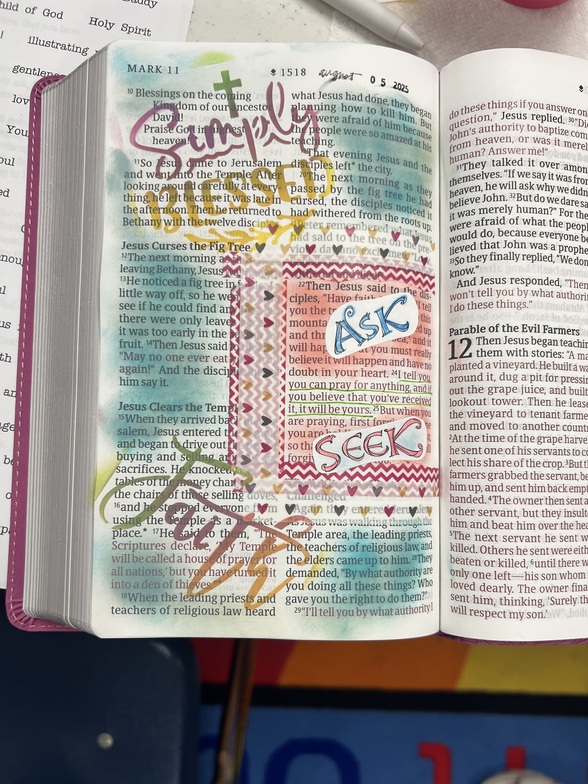 ild of God
Holy Spirit
illustrating
gentlene
lov
You
MARK 11
1518
august 05 2025
Simply
BLESSED
10 Blessings on the coming
Kingdom of our ancestor
David!
Praise God in highest
heaven
11 So Jesus came to Jerusalem
and went into the Temple
looking around carefully at
the afternoon
Bethany with the twelve disc
Jesus Curses the Fig Tree
12 The next morning a
leaving Bethany, Jesus
13 He noticed a fig tree in
little way off, so he we
see if he could find an
there were only leave
it was too early in the
fruit. 14 Then Jesus said
"May no one ever eat
again!" And the discip
him say it.
Jesus Clears the Temp
15 When they arrived ba
salem, Jesus entered t
and began to drive out
buying and selling an
sacrifices. He knocked
tables of the money chan
the chairs of those selling doves,
16 and he stopped everyone from
using the Temple as a market-
place.* 17 He said to them, "The
Scriptures declare, 'My Temple
will be called a house of prayer for
all nations,' but you have turned it
into a den of thieves."
18 When the leading priests and
teachers of religious law heard
what Jesus had done, they began
planning how to kill him. But
they were afraid of him because
the people were so amazed at his
teaching.
That evening Jesus and the
disciples left the city.
The next morning as they
passed by the fig tree he had
cursed, the disciples noticed it
had withered from the roots up.
Peter remembered what
had said to the tree on the
22 Then Jesus said to the dis-
ciples, "Have faith
you the
mounta
and
will hap you must really
believe it will happen and have no
doubt in your heart. 24 I tell you,
you can pray for anything, and if
you believe that you've received
it, it will be yours. 25 But when you
are praying, first
you are
so tha
forgiv
ASK
SEEK
Challenged
Again they entered
Jesus was walking through the
Temple area, the leading priests,
the teachers of religious law, and
the elders came up to him. 28 They
demanded, "By what authority are
you doing all these things? Who
gave you the right to do them?"
29 "I'll tell you by what authority I
do these things if you answer on
question," Jesus replied. 30 "Di
John's authority to baptize com
from heaven, or was it merel
human? Answer me!"
31 They talked it over amon
themselves. "If we say it was fro
heaven, he will ask why we didn
believe John. 32 But do we dare sa
it was merely human?" For the
were afraid of what the people
would do, because everyone be
lieved that John was a prophe
33 So they finally replied, "We don
know."
And Jesus responded, "Then
won't tell you by what authori
I do these things."
Parable of the Evil Farmers
12 Then Jesus began teachin
them with stories: "A m
planted a vineyard. He built a w
around it, dug a pit for pressi
out the grape juice, and built
lookout tower. Then he lease
the vineyard to tenant farme
and moved to another count
2 At the time of the grape harve
he sent one of his servants to c
lect his share of the crop. 3 But th
farmers grabbed the servant, be
him up, and sent him back empt
handed. 4 The owner then sent a
other servant, but they insult
him and beat him over the he
5 The next servant he sent w
killed. Others he sent were eith
beaten or killed, 6 until there w
only one left—his son whom
loved dearly. The owner fina
sent him, thinking, 'Surely th
will respect my son.'